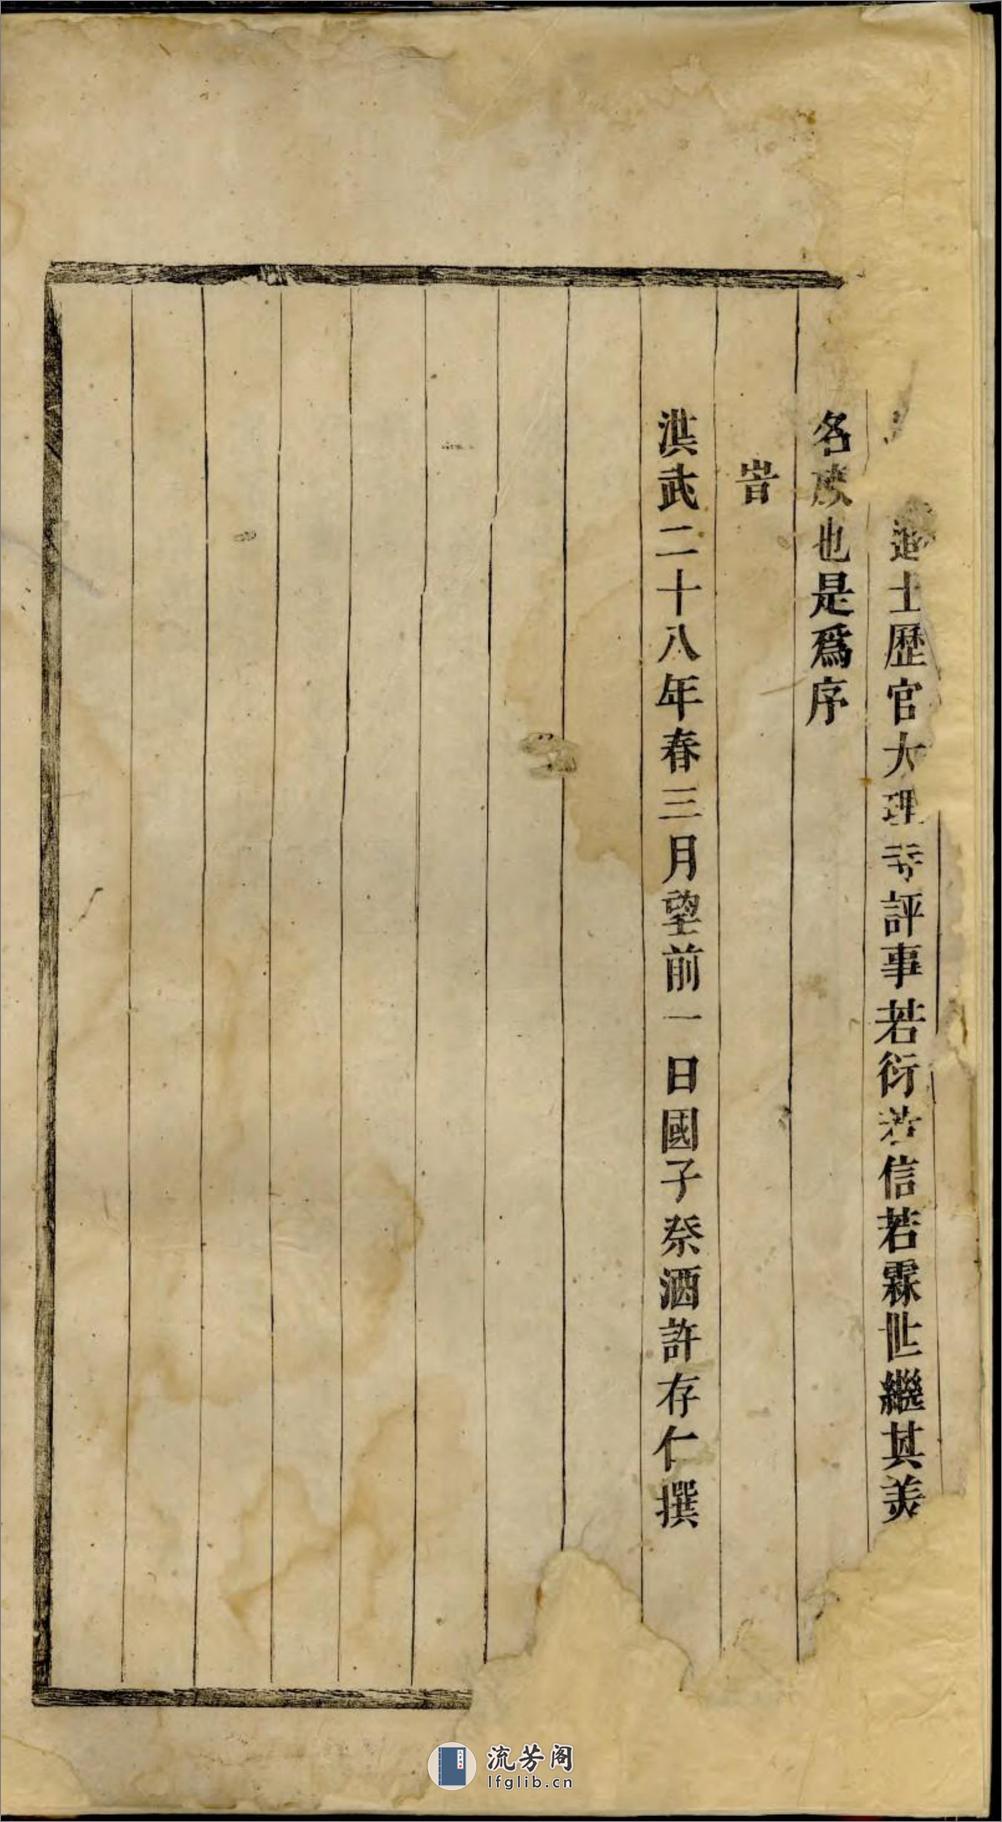 進士歷官大理寺評事若衍若信若霖世繼其美
名族也是爲序
旹
洪武二十八年春三月望前一日國子祭酒許存仁撰
流芳阁
lfglib.cn